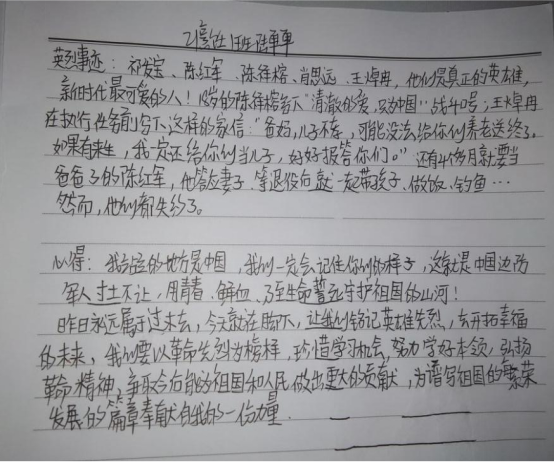 英烈事迹：祁发宝、陈红军、陈祥榕、肖思远、王焯冉，他们是真正的英雄，
新时代最可爱的人！18岁的陈祥榕写下"清澈的爱，只为中国"战斗口号；王焯冉
在执行任务前写下这样的家信："爸妈，儿子不孝，可能没法给你们养老送终了。
如果有来生，我一定还给你们当儿子，好好报答你们。"还有4个月就要当
爸爸了的陈红军，他答应妻子等退役后就一起带孩子、做饭、钓鱼…
然而，他们都失约了。
心得：我站立的地方是中国，我们一定会记住你们的样子，这就是中国边防
军人寸土不让，用青春、鲜血、乃至生命誓死守护祖国的山河！
昨日永远属于过去，今天就在脚下，让我们铭记英雄先烈，去开拓幸福
的未来，我们要以革命先烈为榜样，珍惜学习机会，努力学好本领，弘扬
革命精神，争取今后能为祖国和人民做出重大的贡献，为谱写祖国的繁荣
发展的篇章奉献自我的一份力量